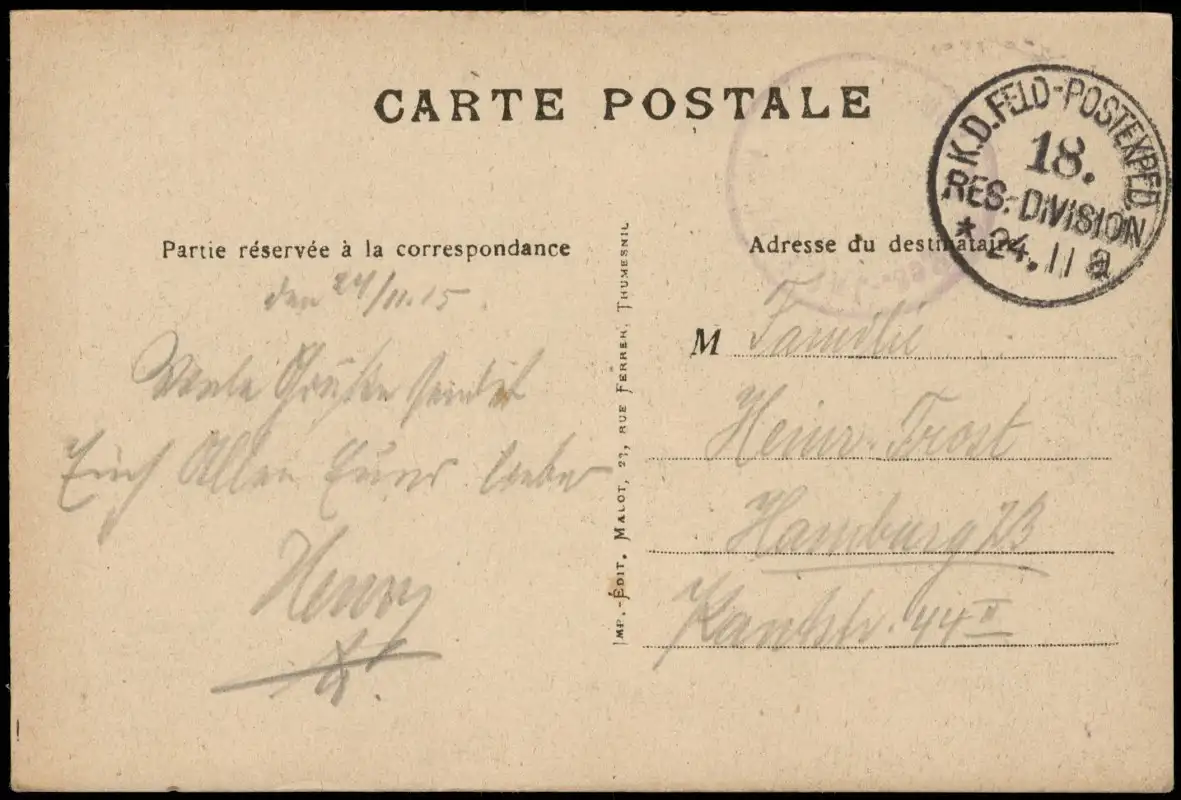 CARTE POSTALE
K.D. FELD-POSTEXPED.
18.
RES.-DIVISION
* 24.11 a
Partie réservée à la correspondance
den 24/11.15.
Viele Grüße sendet
Euch Allen Euer lieber
Henry
IMP.-ÉDIT. MALOT, 23, RUE FERRER, THUMESNIL
Adresse du destinataire
M Familie
Heinr. Frost
Hamburg 23
Kantstr. 44 II